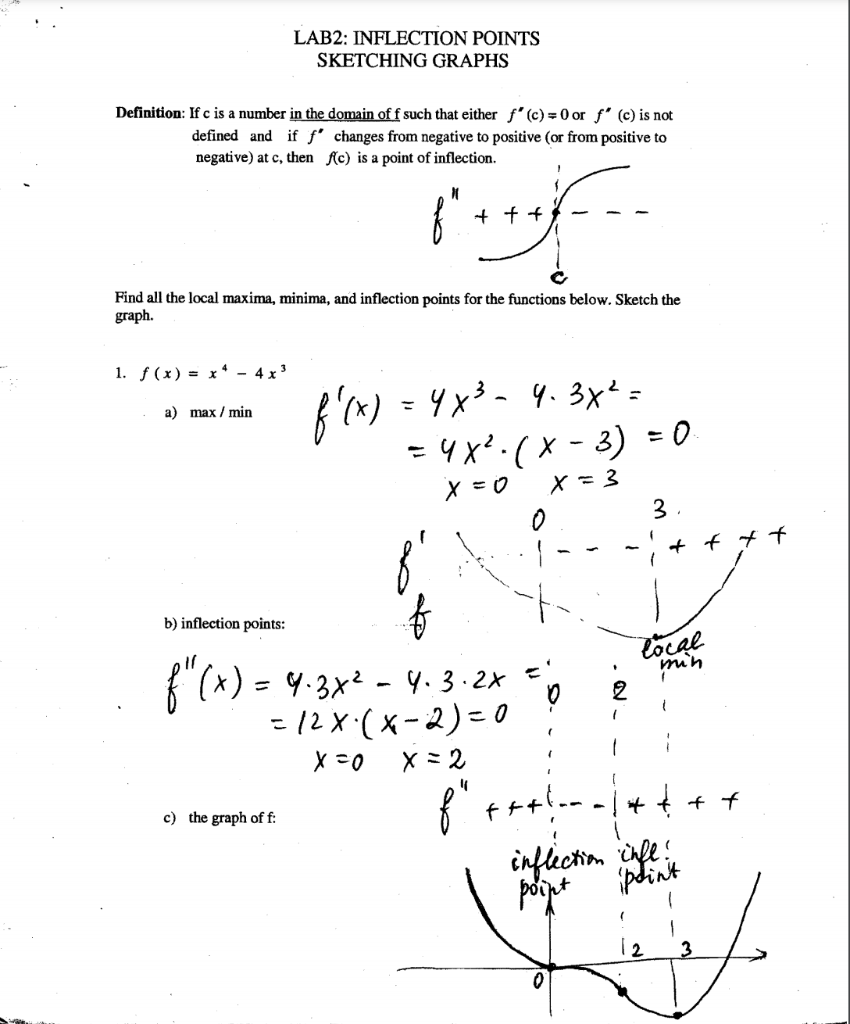 LAB2: INFLECTION POINTS
SKETCHING GRAPHS
Definition: If c is a number in the domain of f such that either f″ (c) = 0 or f″ (c) is not
defined and if f″ changes from negative to positive (or from positive to
negative) at c, then f(c) is a point of inflection.
f" + + + - - -
c
Find all the local maxima, minima, and inflection points for the functions below. Sketch the
graph.
1. f (x) = x⁴ - 4x³
a) max / min
f'(x) = 4x³ - 4·3x² =
= 4x²·(x - 3) = 0
x = 0 x = 3
0 3
f' - - - + + + +
f
local
min
b) inflection points:
f"(x) = 4·3x² - 4·3·2x =
= 12x·(x-2) = 0
x = 0 x = 2
0 2
f" + + + - - - + + + +
c) the graph of f:
inflection infl.
point point
2 3
0